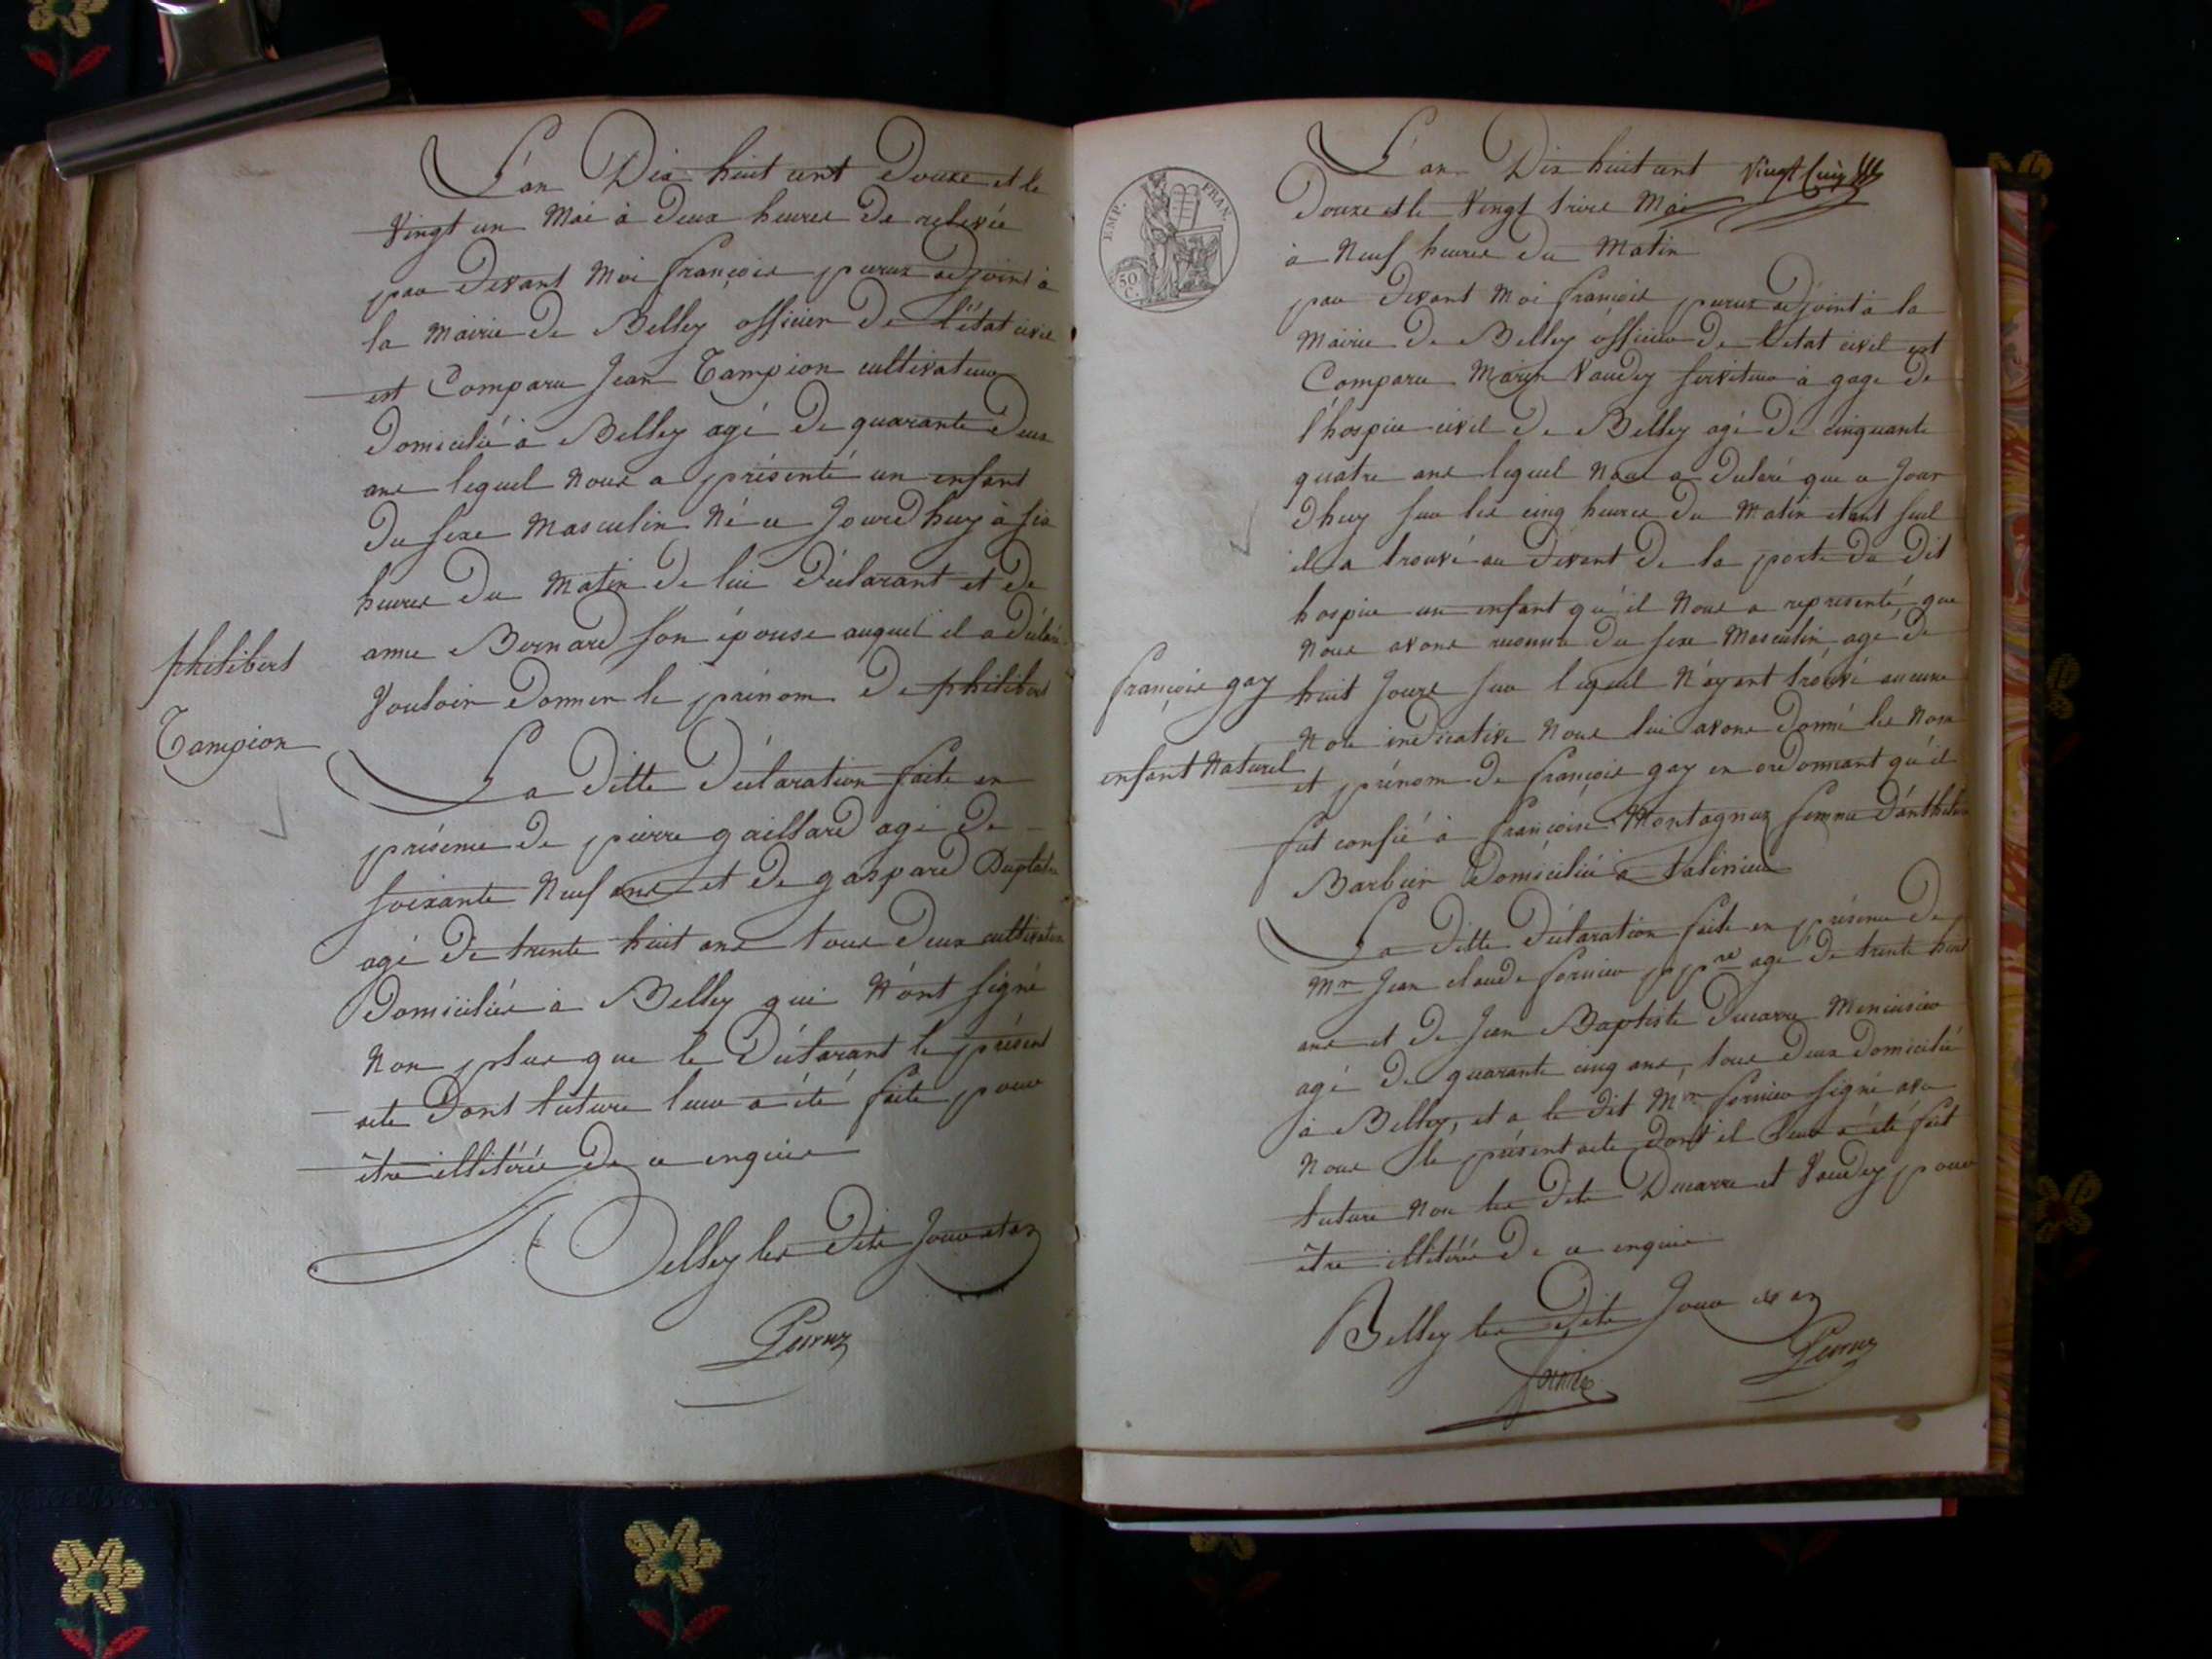 L'an Dix huit cent Douze et le
Vingt un Mai à Deux heures De relevée
par Devant Moi françois peruz adjoint à
la Mairie De Belley officier De l'état civil
est Comparu Jean Tampion cultivateur
Domicilié à Belley agé De quarante Deux
ans lequel Nous a présenté un enfant
Du sexe Masculin Né ce Jourd'huy à six
heures Du Matin De lui Déclarant et De
anne Bernard son épouse auquel il a Déclaré
Vouloir Donner le prénom De philibert
philibert
Tampion
La Ditte Déclaration faite en
présence De pierre gaillard agé De
soixante Neuf ans et De gaspard
agé De trente huit ans tous Deux cultivateurs
Domiciliés à Belley qui N'ont signé
Non plus que le Déclarant le présent
acte Dont lecture leur a été faite pour
être illitérés De ce enquis
Belley les Dits Jour et an
Peruz
EMP. FRAN.
50 C.
L'an Dix huit cent Vingt Cinq
Douze et le Vingt trois Mai
à Neuf heures Du Matin
par Devant Moi françois peruz adjoint à la
Mairie De Belley officier De l'état civil est
Comparu Marin Vaudey serviteur à gage De
l'hospice civil De Belley agé De cinquante
quatre ans lequel Nous a Declaré que ce Jour
D'huy sur les cinq heures Du Matin etant seul
il a trouvé au Devant De la porte Du Dit
hospice un enfant qu'il Nous a representé, que
Nous avons reconnu Du sexe Masculin, agé De
huit Jours sur lequel N'ayant trouvé aucune
Note indicative Nous lui avons Donné les Nom
et prénom De françois gay en ordonnant qu'il
fut confié à françoise Montagnuz femme D'anthelme
Barbier Domicilié à talissieu
françois gay
enfant Naturel
La Ditte Déclaration faite en présence De
Mr Jean claude fornier ppre agé De trente huit
ans et De Jean Baptiste Ducarre Menuisier
agé De quarante cinq ans, tous Deux Domicilié
à Belley, et a le Dit Mr fornier signé avec
Nous le présent acte Dont il leur a été fait
lecture Non les Dits Ducarre et Vaudey pour
être illitérés De ce enquis
Belley les Dits Jour et an
fornier Peruz